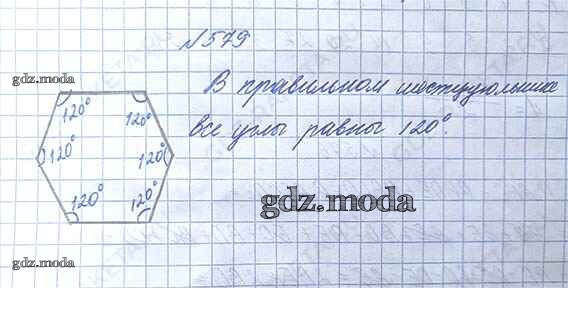 №579
gdz.moda
В правильном шестиугольнике
120° 120°
все углы равны 120°.
120° 120°
120° 120°
gdz.moda
gdz.moda